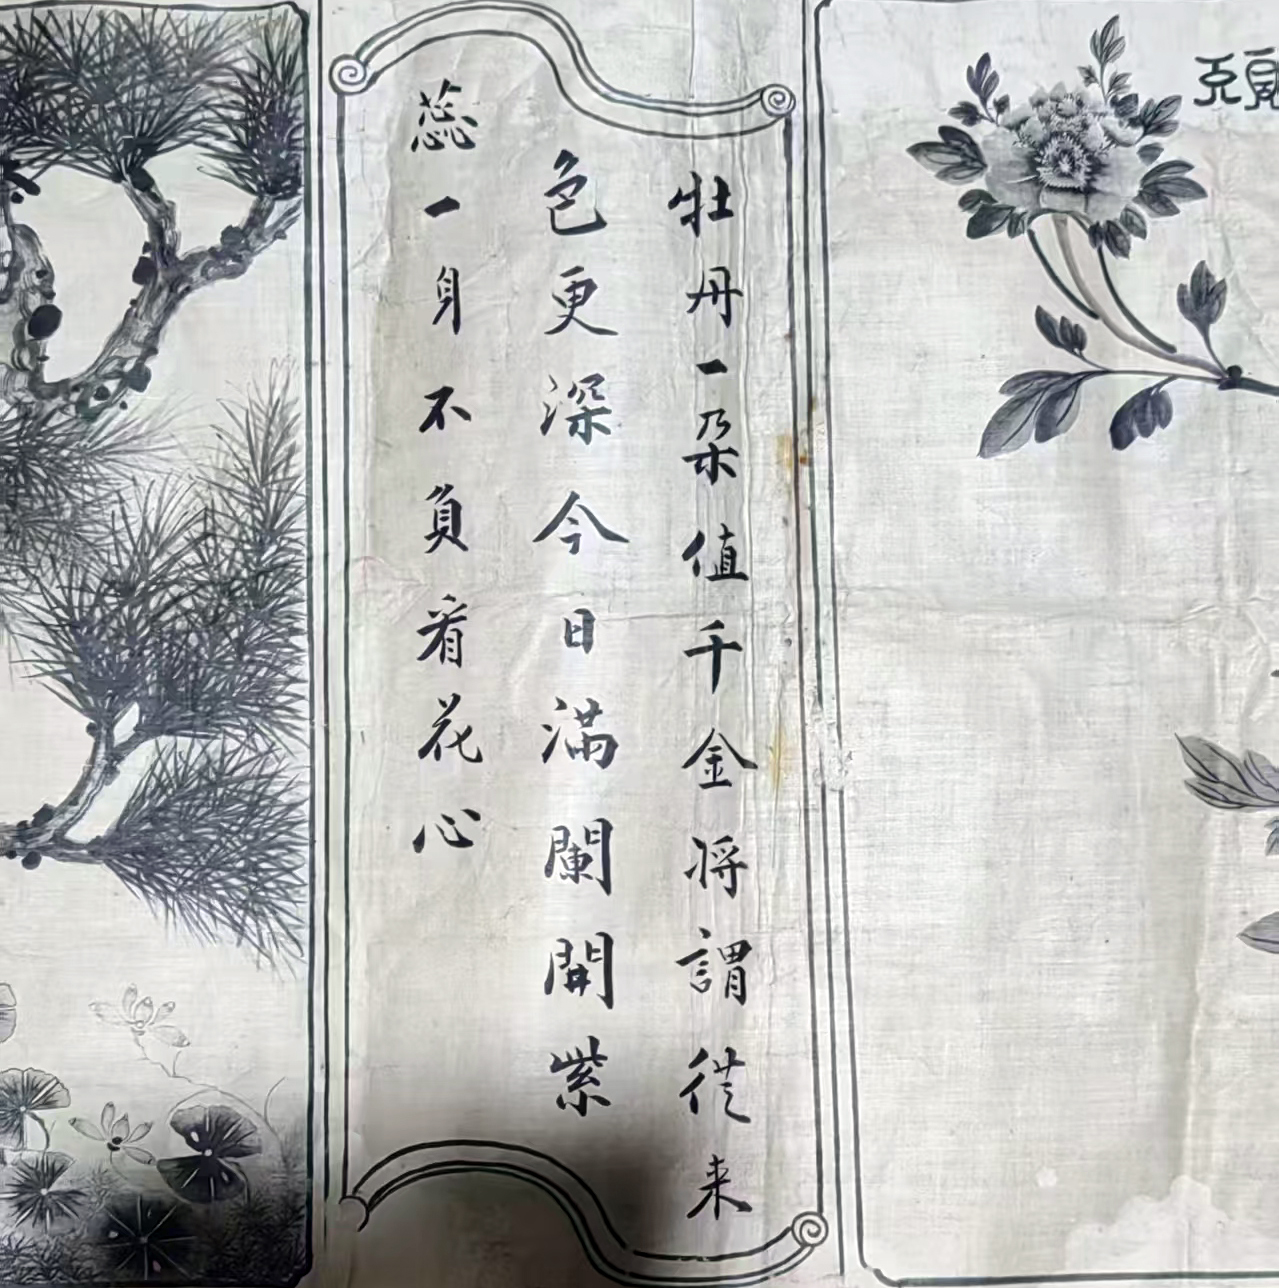 牡丹一朵值千金将謂従来
色更深今日满闌開紫
蕊一身不負看花心